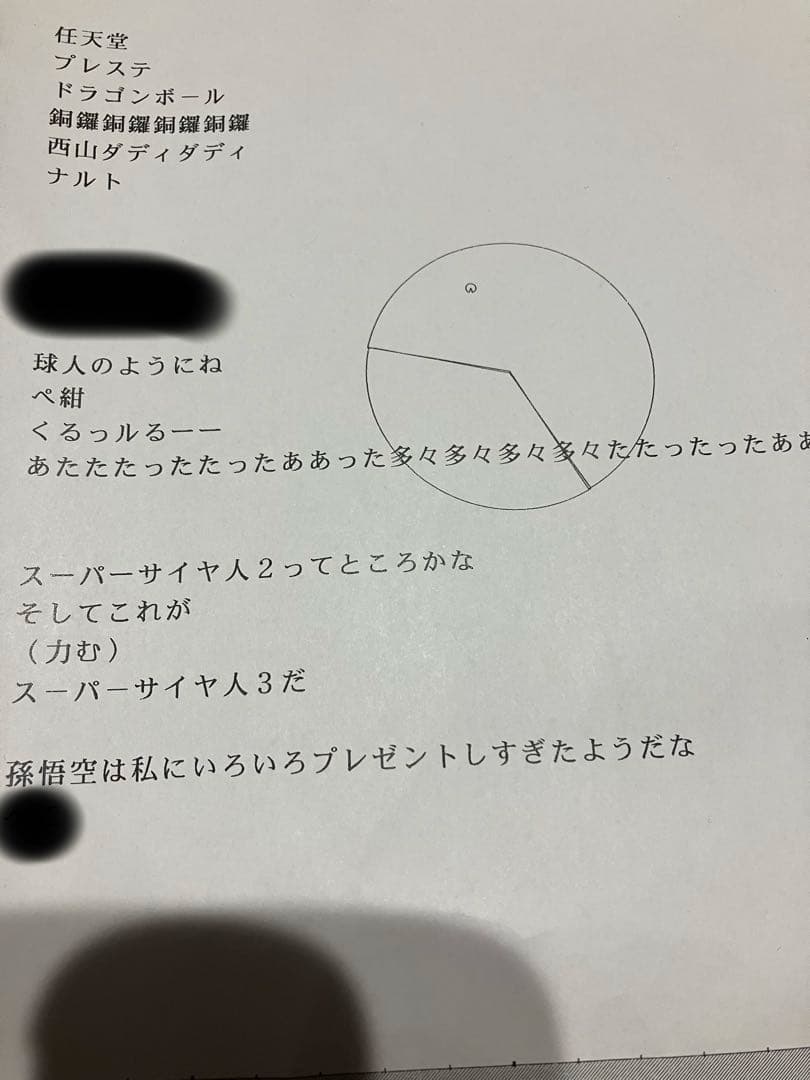 任天堂
プレステ
ドラゴンボール
銅鑼銅鑼銅鑼銅鑼
西山ダディダディ
ナルト
球人のようにね
ペ紺
くるっルるーー
あたたたったたったああった多々多々多々多々たたったったああ
スーパーサイヤ人２ってところかな
そしてこれが
（力む）
スーパーサイヤ人３だ
孫悟空は私にいろいろプレゼントしすぎたようだな